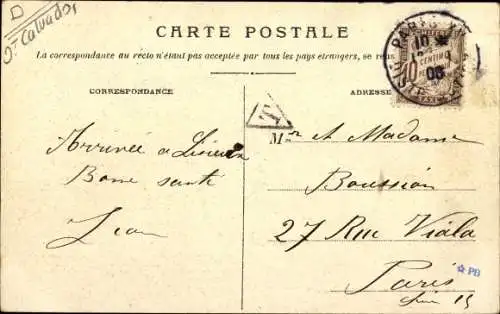 D
Dt Calvados
CARTE POSTALE
La correspondance au recto n'étant pas acceptée par tous les pays étrangers, se
CORRESPONDANCE
ADRESSE
PARIS
10
05
10 CENTIMES
T
Arrivée a Lisieux
Bonne santé
Jean
Mr et Madame
Boussion
27 Rue Viala
Paris
PB